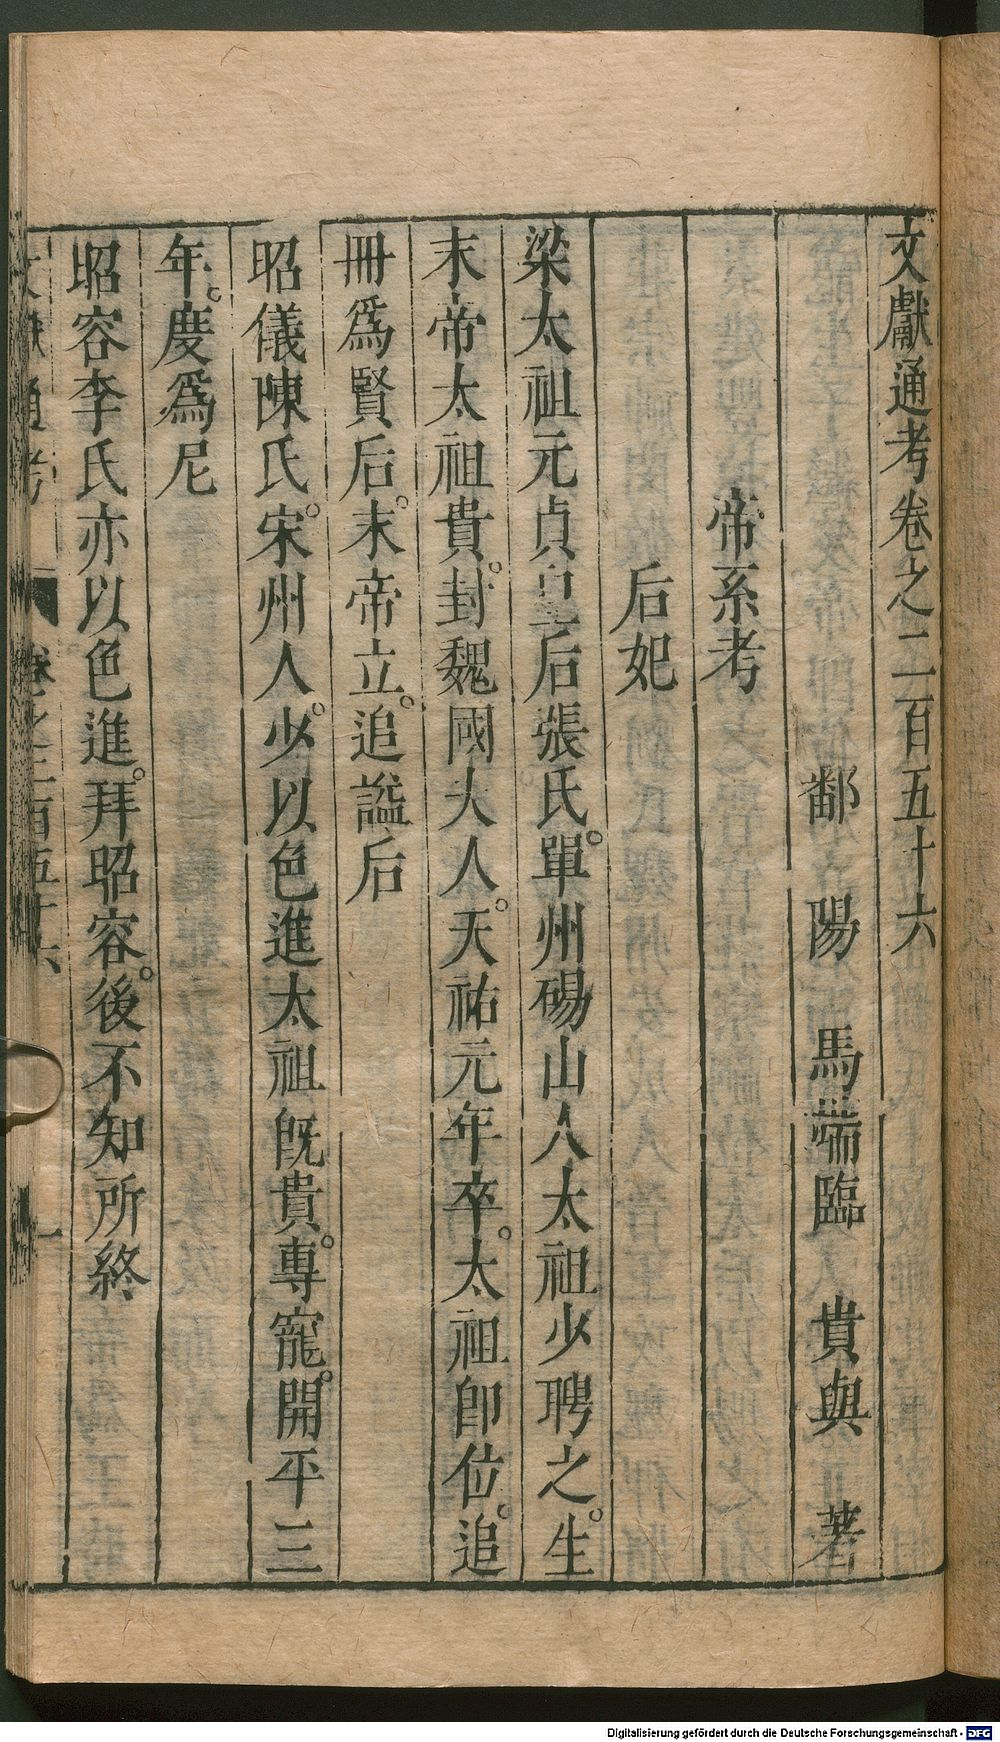 文獻通考卷之二百五十六
鄱陽馬端臨貴與著
帝系考
后妃
梁太祖元貞皇后張氏。單州碭山人太祖少聘之。生
末帝太祖貴。封魏國夫人。天祐元年卒。太祖卽位。追
冊爲賢后。末帝立。追諡后
昭儀陳氏。宋州人。少以色進太祖旣貴。專寵。開平三
年。度爲尼
昭容李氏亦以色進。拜昭容。後不知所終
文獻通考 卷之二百五十六 一
Digitalisierung gefördert durch die Deutsche Forschungsgemeinschaft - DFG